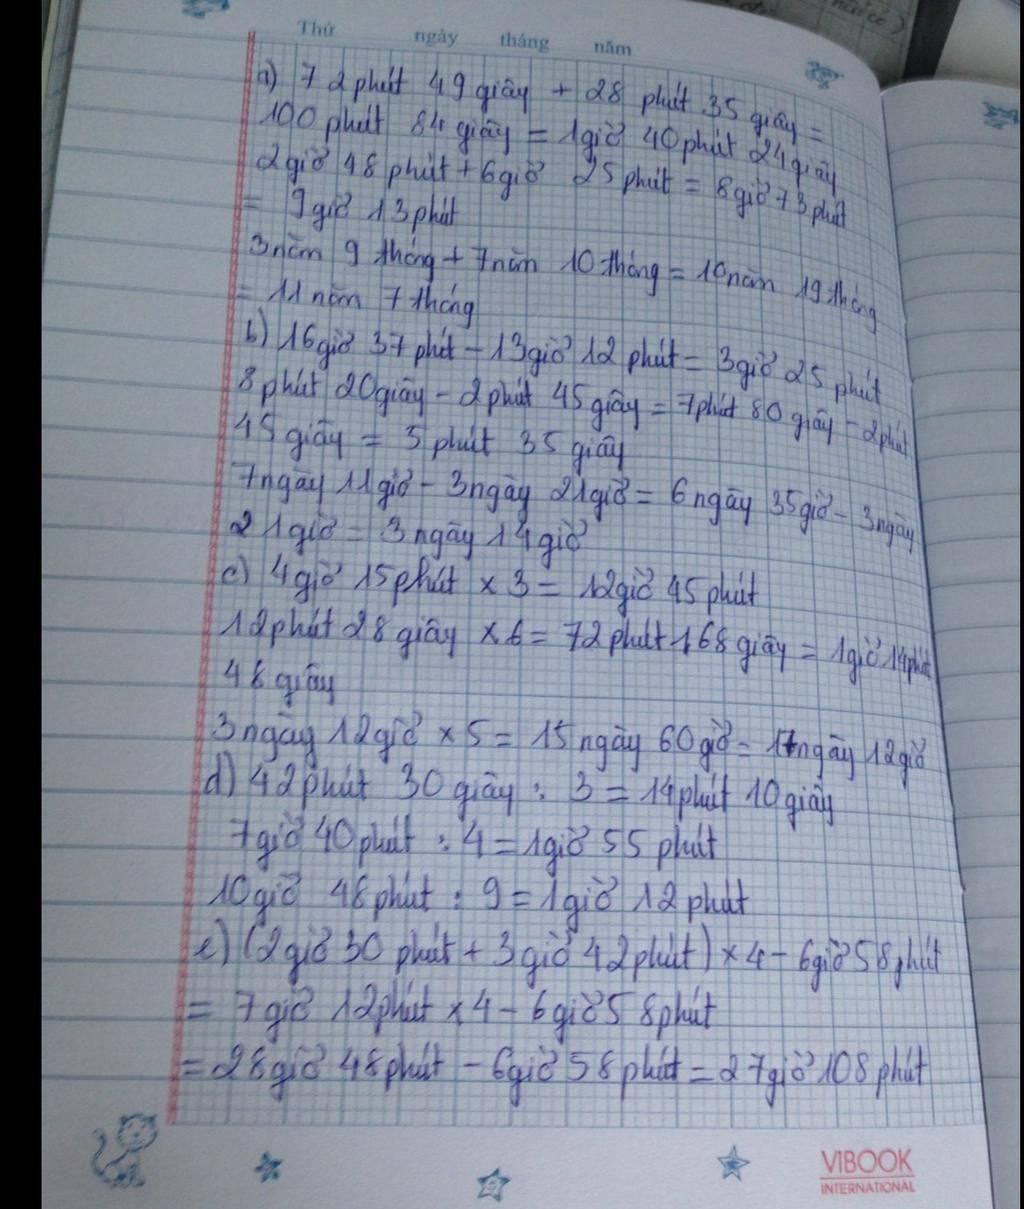 Thứ ngày tháng năm
a) 72 phút 49 giây + 28 phút 35 giây =
100 phút 84 giây = 1 giờ 40 phút 24 giây
2 giờ 48 phút + 6 giờ 25 phút = 8 giờ 73 phút
= 9 giờ 13 phút
3 năm 9 tháng + 7 năm 10 tháng = 10 năm 19 tháng
= 11 năm 7 tháng
b) 16 giờ 37 phút - 13 giờ 12 phút = 3 giờ 25 phút
8 phút 20 giây - 2 phút 45 giây = 7 phút 80 giây - 2 phút
45 giây = 5 phút 35 giây
7 ngày 11 giờ - 3 ngày 21 giờ = 6 ngày 35 giờ - 3 ngày
21 giờ = 3 ngày 14 giờ
c) 4 giờ 15 phút x 3 = 12 giờ 45 phút
12 phút 28 giây x 6 = 72 phút 168 giây = 1 giờ 14 phút
48 giây
3 ngày 12 giờ x 5 = 15 ngày 60 giờ = 17 ngày 12 giờ
d) 42 phút 30 giây : 3 = 14 phút 10 giây
7 giờ 40 phút : 4 = 1 giờ 55 phút
10 giờ 48 phút : 9 = 1 giờ 12 phút
e) (2 giờ 30 phút + 3 giờ 42 phút) x 4 - 6 giờ 58 phút
= 7 giờ 12 phút x 4 - 6 giờ 58 phút
= 28 giờ 48 phút - 6 giờ 58 phút = 27 giờ 108 phút
VIBOOK
INTERNATIONAL